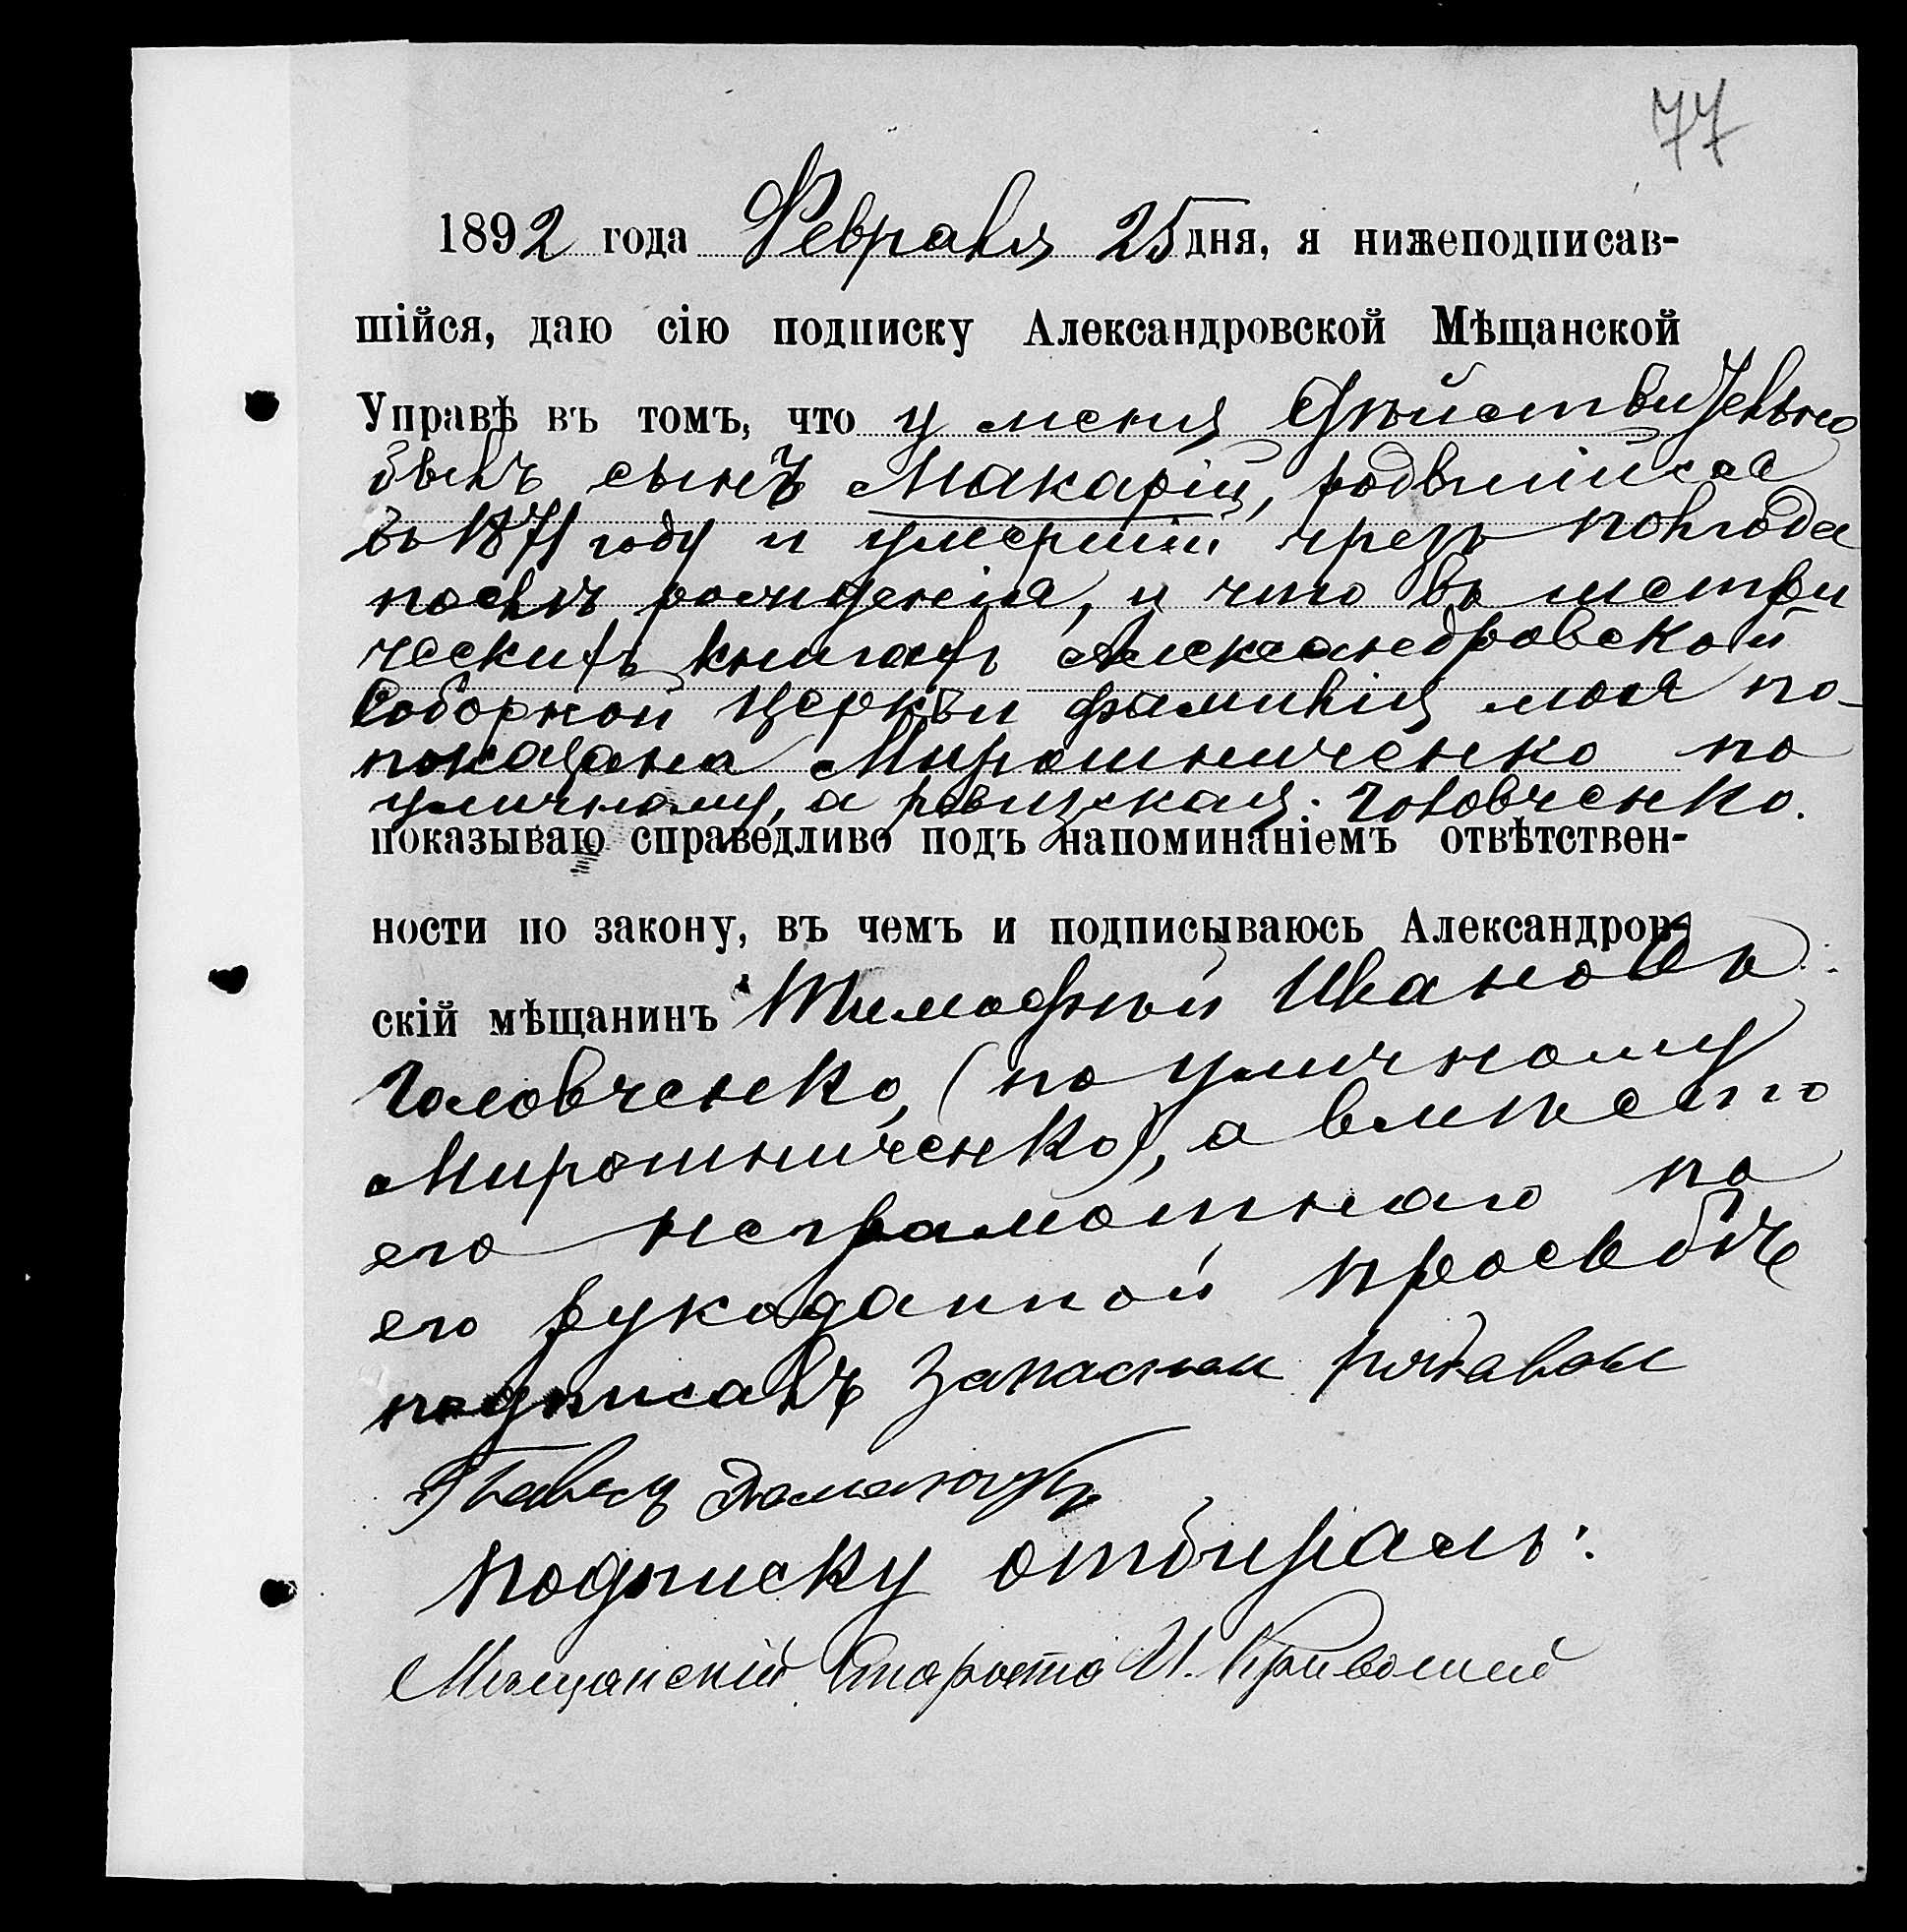 77
1892 года Февраля 25 дня, я нижеподписав-
шійся, даю сію подписку Александровской Мѣщанской
Управѣ въ томъ, что у меня дѣйствительно
былъ сынъ Макарій, родвшійся
въ 1871 году и умершій чрезъ полгода
послѣ рожденія, и что въ метри
ческихъ книгахъ Александровской
Соборной церкви фамилія моя по-
показана Мирошниченко по
уличному, а ревизская Головченко.
показываю справедливо подъ напоминаніемъ отвѣтствен-
ности по закону, въ чемъ и подписываюсь Александров-
скій мѣщанинъ Тимофѣй Ивановъ
Головченко, (по уличному
Мирошниченко), а вмѣсто
его неграмотнаго по
его рукоданной просьбѣ
подписалъ Запасной рядовой
Павелъ
Подписку отбиралъ:
Мѣщанскій Староста И. Кривошей